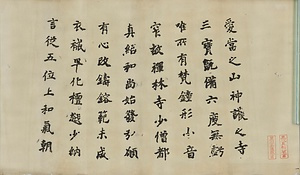 愛當之山神護之寺
三寶甄備六度無虧
唯所有梵鐘形小音
窄故禪林寺少僧都
真紹和尚始發弘願
有心改鑄鎔範未成
衣祴早化檀越少納
言從五位上和氣朝